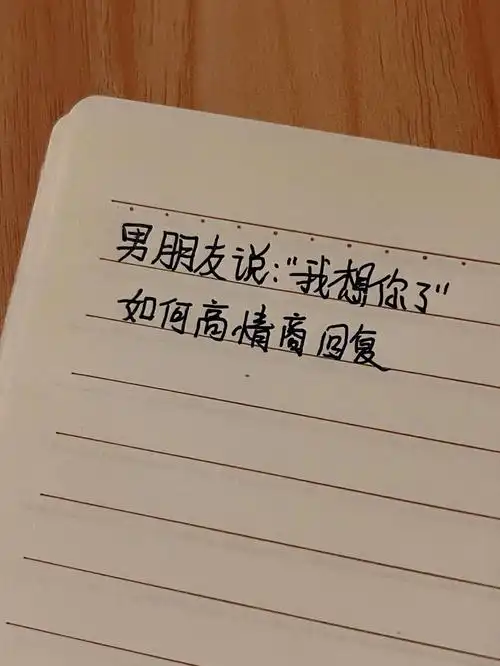 男朋友说:"我想你了"
如何高情商回复